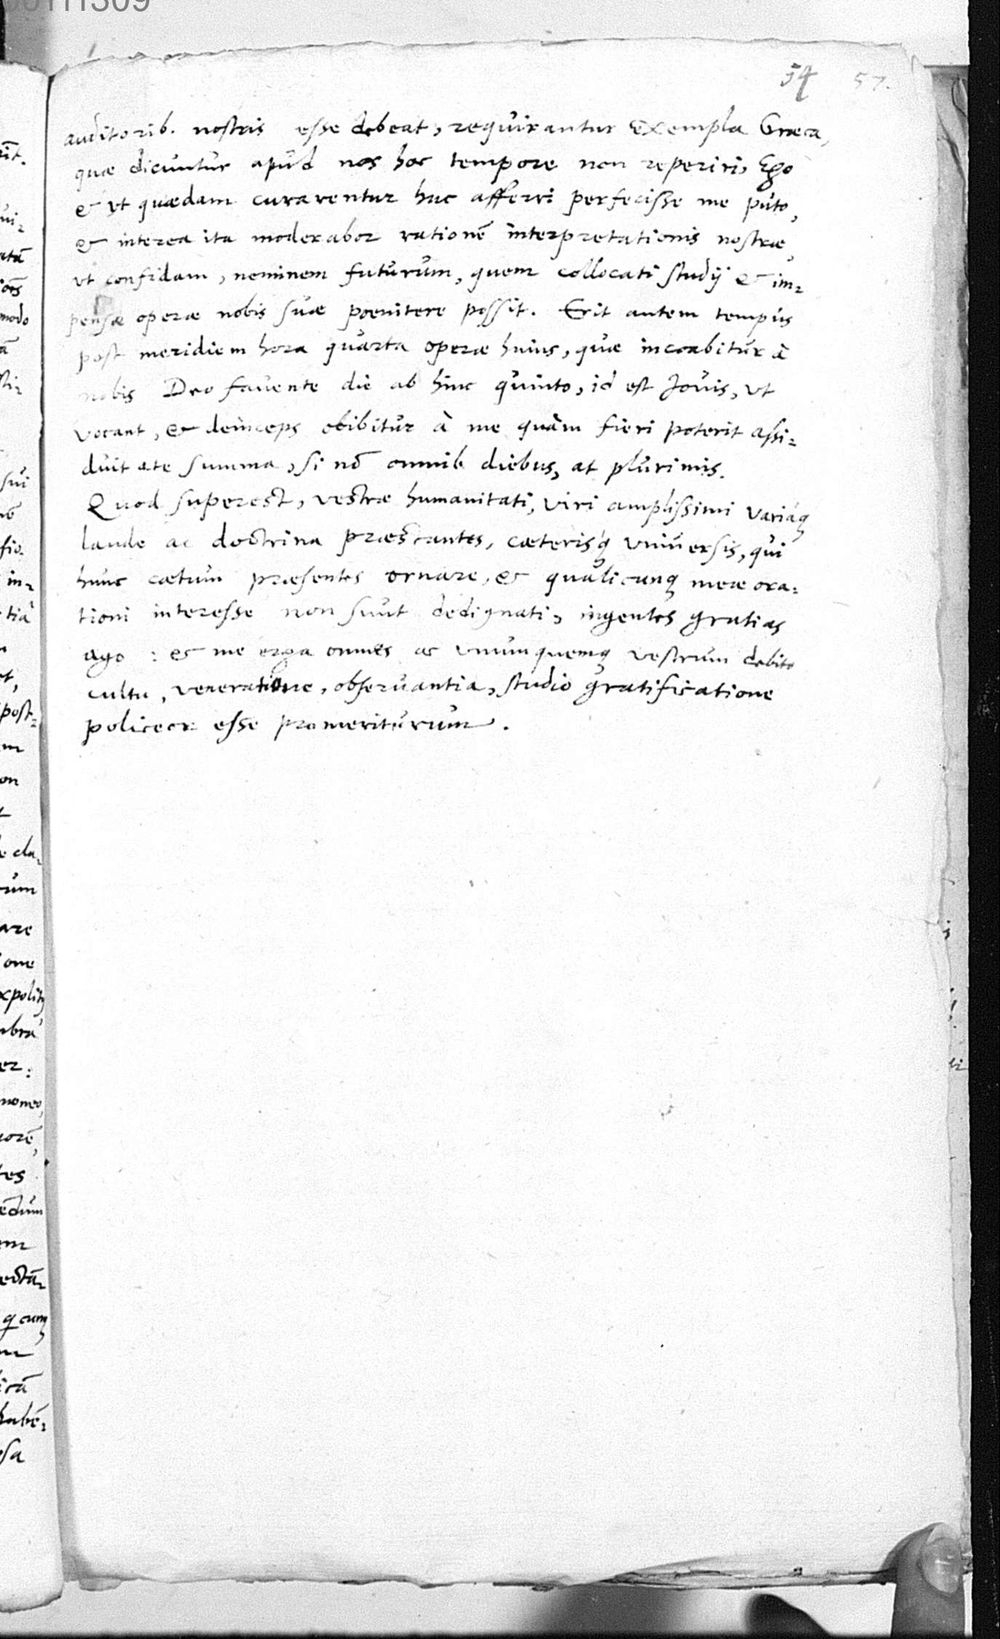 54 57.
auditorib. nostris esse debeat, requirantur Exempla Græca,
quæ dicuntur apud nos hoc tempore non reperiri, Ego
& vt quædam curarentur huc afferri perfecisse me puto,
& interea ita moderabor rationē interpretationis nostræ,
vt confidam, neminem futurum, quem collocati studij & im-
pensæ operæ nobis suæ poenitere possit. Erit autem tempus
post meridiem hora quarta operæ huius, quæ incoabitur à
nobis Deo fauente die ab hinc quinto, id est Jouis, vt
vocant, & deinceps exhibitur à me quàm fieri poterit assi-
duitate summa, si nō omnib diebus, at plurimis.
Quod superest, vestræ humanitati, viri amplissimi variaq
laude ac doctrina præstantes, cæterisq vniuersis, qui
hunc cætum præsentes ornare, et qualicunq meæ ora-
tioni interesse non sunt dedignati, ingentes gratias
ago : et me erga omnes ac vnumquemq vestrum debito
cultu, veneratione, obseruantia, studio gratificatione
policeor esse promeriturum.